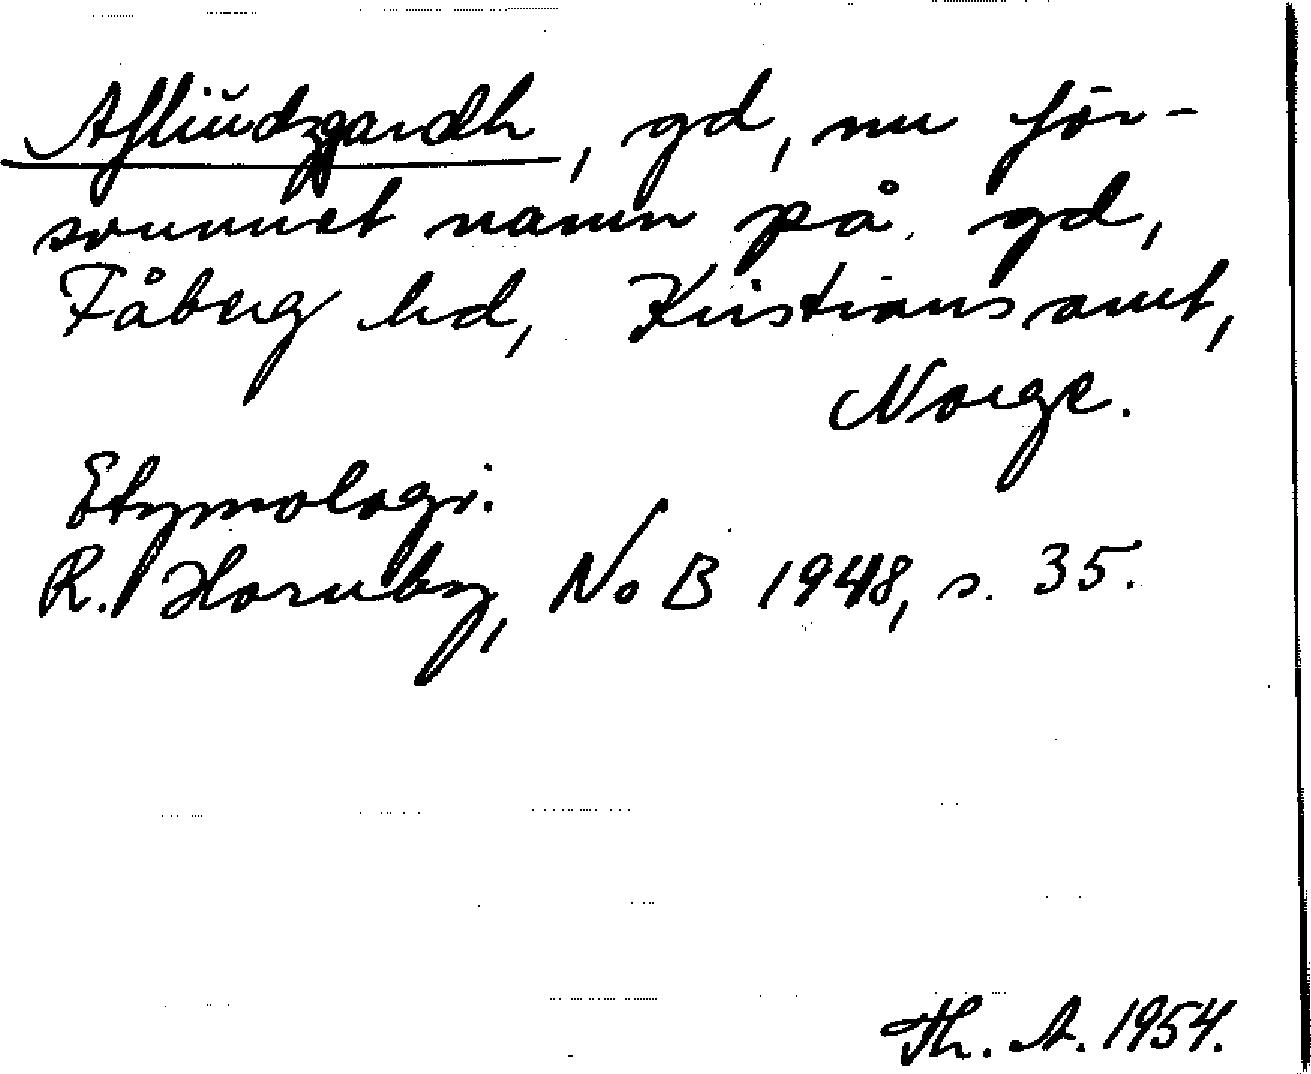 Afliudzgardh, gd, nu för-
svunnet namn på gd,
Fåberg hd, Kristians amt,
Norge.
Etymologi.
R. Hornby, NoB 1948, s. 35.
Th. A. 1954.